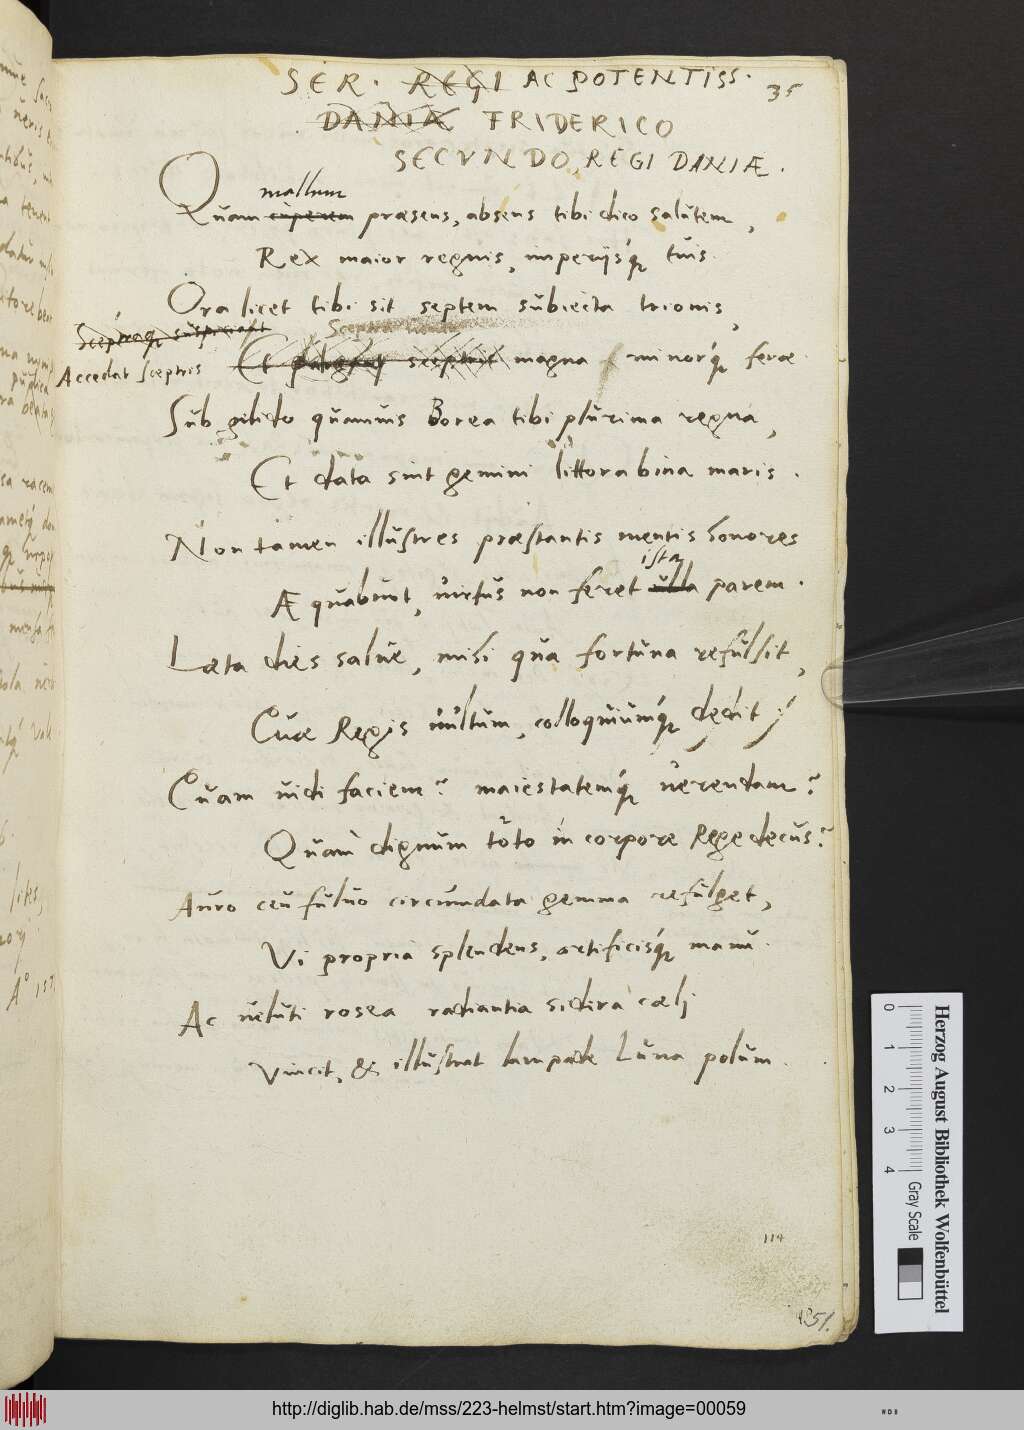 SER. REGI AC POTENTISS.
35
DANIÆ FRIDERICO
SECVNDO, REGI DANIÆ.
mallem
Quam cuperem præsens, absens tibi dico salutem,
Rex maior regnis, imperijsq́ꝫ tuis.
Ora licet tibi sit septem subiecta trionis,
Sceptraqꝫ suspiciant
Sceptra
Accedat sceptris
Et sceptris magna minorq́ꝫ feræ
Sub gelido quamuis Borea tibi plurima regna,
Et data sint gemini littora bina maris.
Non tamen illustres præstantis mentis honores
ista
Æquabunt, uirtus non feret ulla parem.
Læta dies salue, mihi qua fortuna refulsit,
Cuæ Regis uultum, colloquiumq́ꝫ dedit
Cuam uidi faciem? maiestatemq́ꝫ uerendam?
Quam dignum toto in corpore Rege decus?
Auro ceu fuluo circumdata gemma refulget,
Vi propria splendens, artificisq́ꝫ manu.
Ac ueluti rosea radiantia sidera cæli
Vincit, & illustrat lampade Luna polum.
114
Herzog August Bibliothek Wolfenbüttel
0 1 2 3 4 Gray Scale
http://diglib.hab.de/mss/223-helmst/start.htm?image=00059